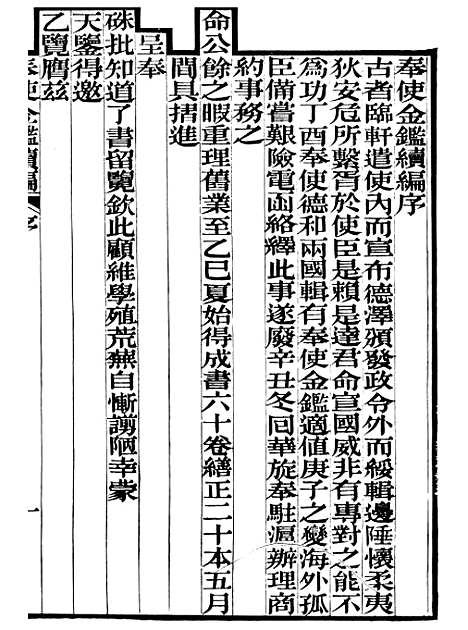 奉使金鑑續編序
古者臨軒遣使內而宣布德澤頒發政令外而綏輯邊陲懷柔夷
狄安危所繫胥於使臣是賴是達君命宣國威非有專對之能不
爲功丁酉奉使德和兩國輯有奉使金鑑適値庚子之變海外孤
臣備嘗艱險電函絡繹此事遂廢辛丑冬回華旋奉駐滬辦理商
約事務之
命公餘之暇重理舊業至乙巳夏始得成書六十卷繕正二十本五月
間具摺進
呈奉
硃批知道了書留覽欽此顧維學殖荒蕪自慚謭陋幸蒙
天鑒得邀
乙覽膺茲
奉使金鑑續編 序
一